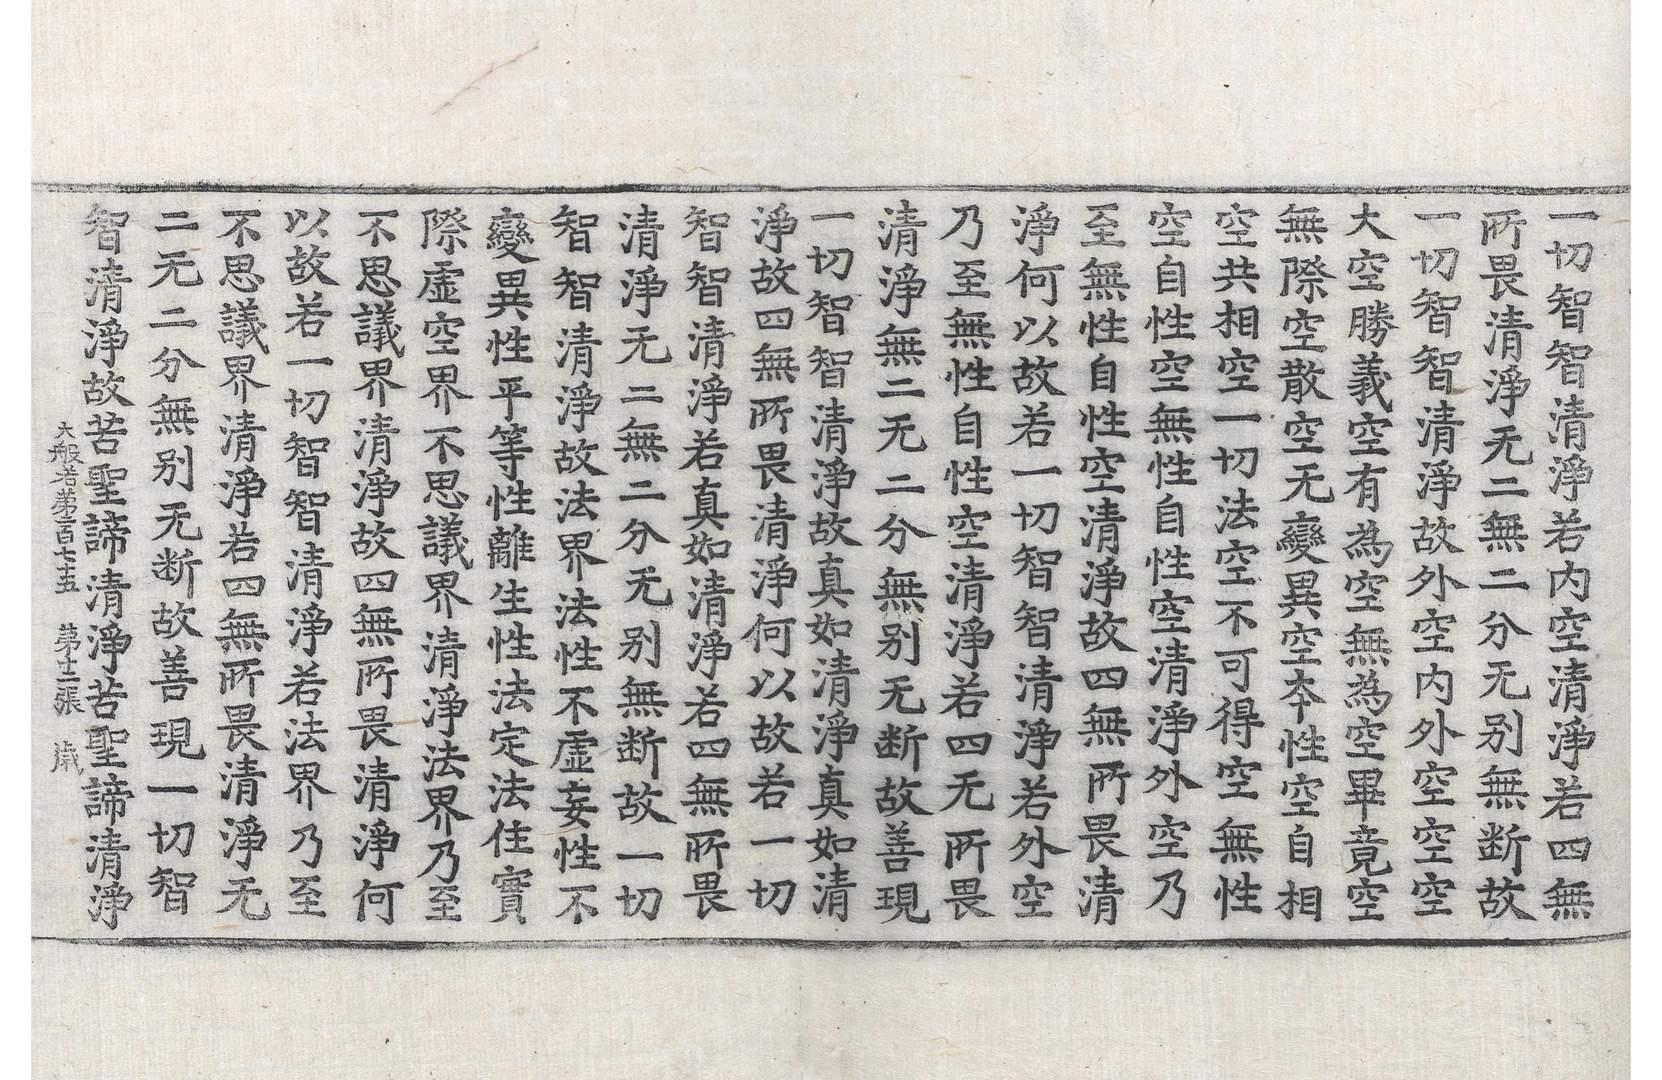 一切智智清淨若内空清淨若四無
所畏清淨无二無二分无别無断故
一切智智清淨故外空内外空空空
大空勝義空有為空無為空畢竟空
無際空散空无變異空夲性空自相
空共相空一切法空不可得空無性
空自性空無性自性空清淨外空乃
至無性自性空清淨故四無所畏清
淨何以故若一切智智清淨若外空
乃至無性自性空清淨若四无所畏
清淨無二无二分無别无断故善現
一切智智清淨故真如清淨真如清
淨故四無所畏清淨何以故若一切
智智清淨若真如清淨若四無所畏
清淨无二無二分无别無断故一切
智智清淨故法界法性不虛妄性不
變異性平等性離生性法定法住實
際虛空界不思議界清淨法界乃至
不思議界清淨故四無所畏清淨何
以故若一切智智清淨若法界乃至
不思議界清淨若四無所畏清淨无
二无二分無别无断故善現一切智
智清淨故苦聖諦清淨苦聖諦清淨
大般若第一百七十五 第十二張 歳